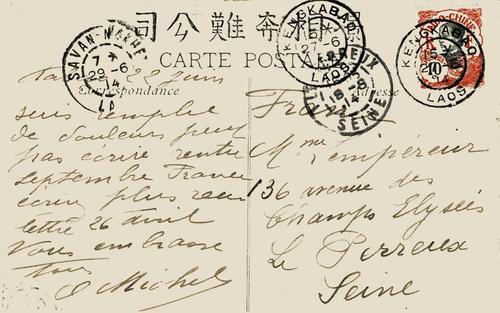 司公相奔難中
CARTE POSTALE
Correspondance
Adresse
SAVANNAKHET
7
29-6
14
KENGKABAO
5
27-6
LAOS
LE PERREUX
18-8
14
SEINE
KENGKABAO
10
LAOS
22 Juin
suis remplie
de douleurs peux
pas écrire rentre
septembre France
écrire plus
lettre 26 avril
Vous embrasse
Tous
Michel
France
Mme Lempereur
136 avenue des
Champs Elysées
Le Perreux
Seine